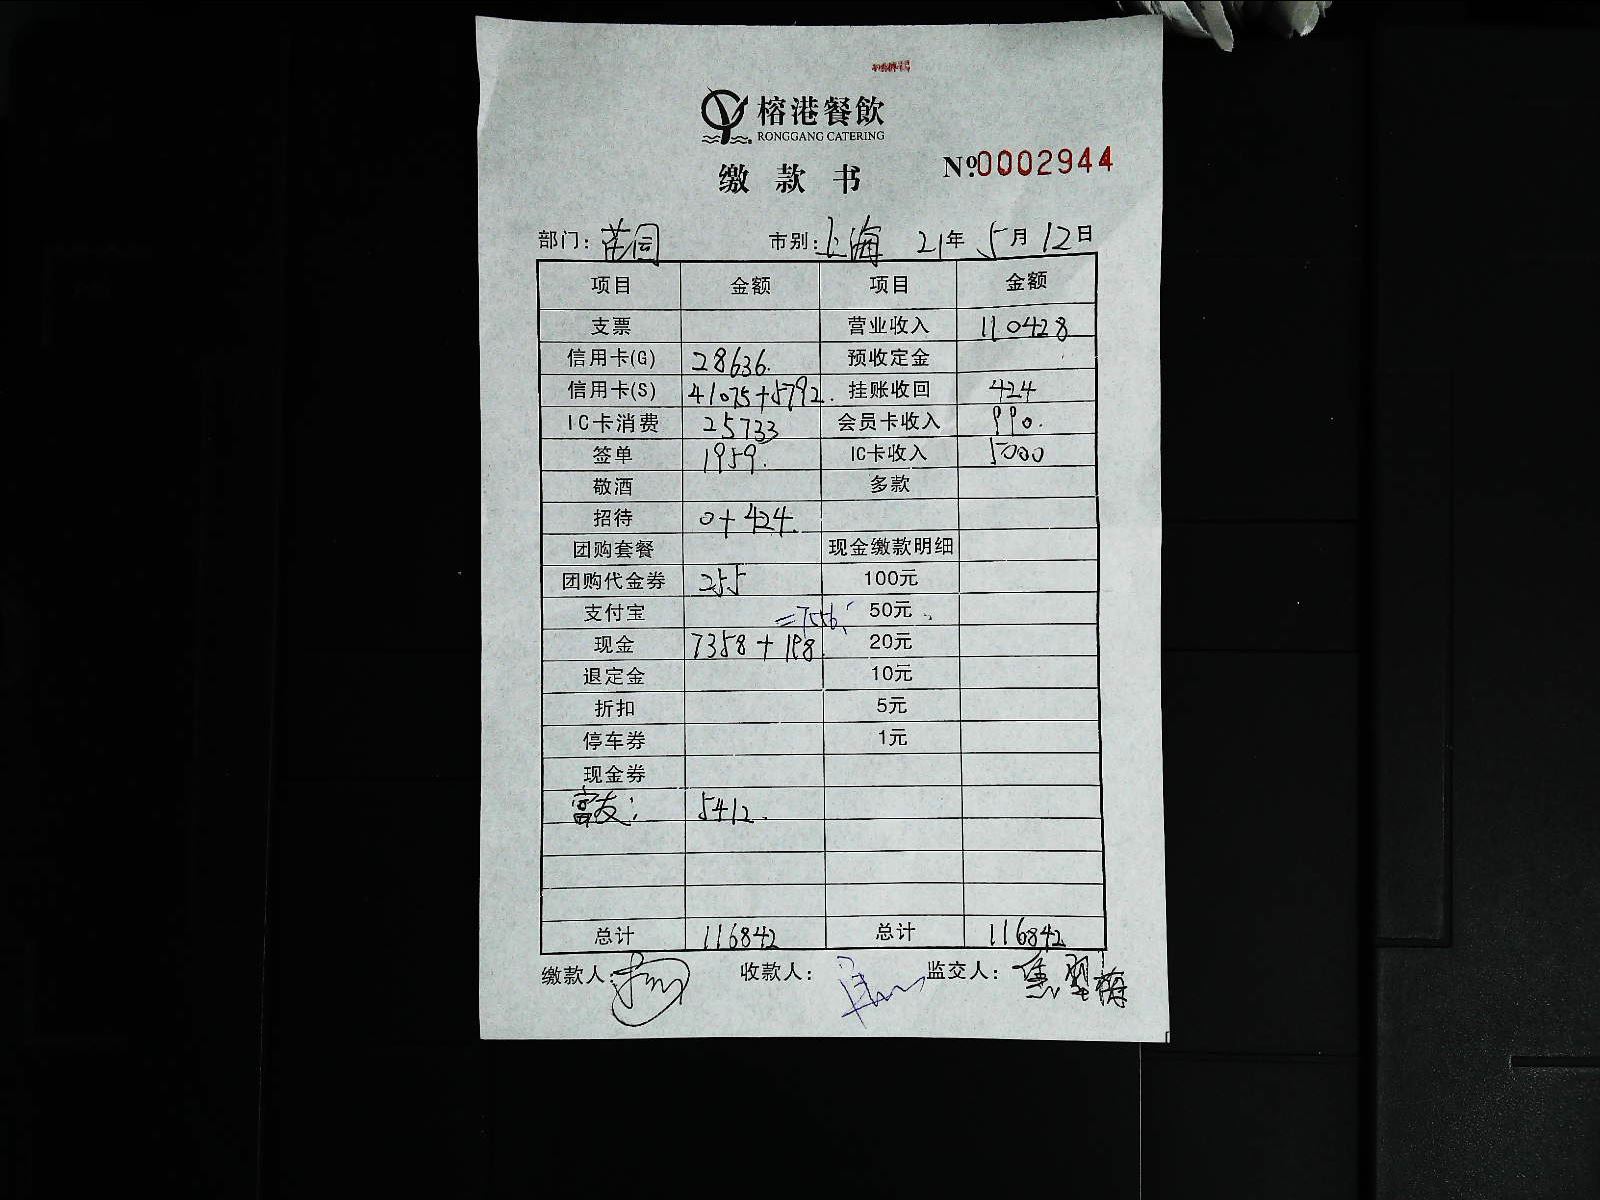 榕港餐飲
RONGGANG CATERING
缴款书 Nº0002944
部门：苗园 市别：上海 21年 5月12日
项目 金额 项目 金额
支票 营业收入 110428
信用卡(G) 28636. 预收定金
信用卡(S) 41075+5792. 挂账收回 424
IC卡消费 25733 会员卡收入 990.
签单 1959. IC卡收入 5000
敬酒 多款
招待 0+424.
团购套餐 现金缴款明细
团购代金券 255 100元
支付宝 =7556. 50元
现金 7358+198. 20元
退定金 10元
折扣 5元
停车券 1元
现金券
富友： 5412.
总计 116842 总计 116842
缴款人： 收款人： 监交人：